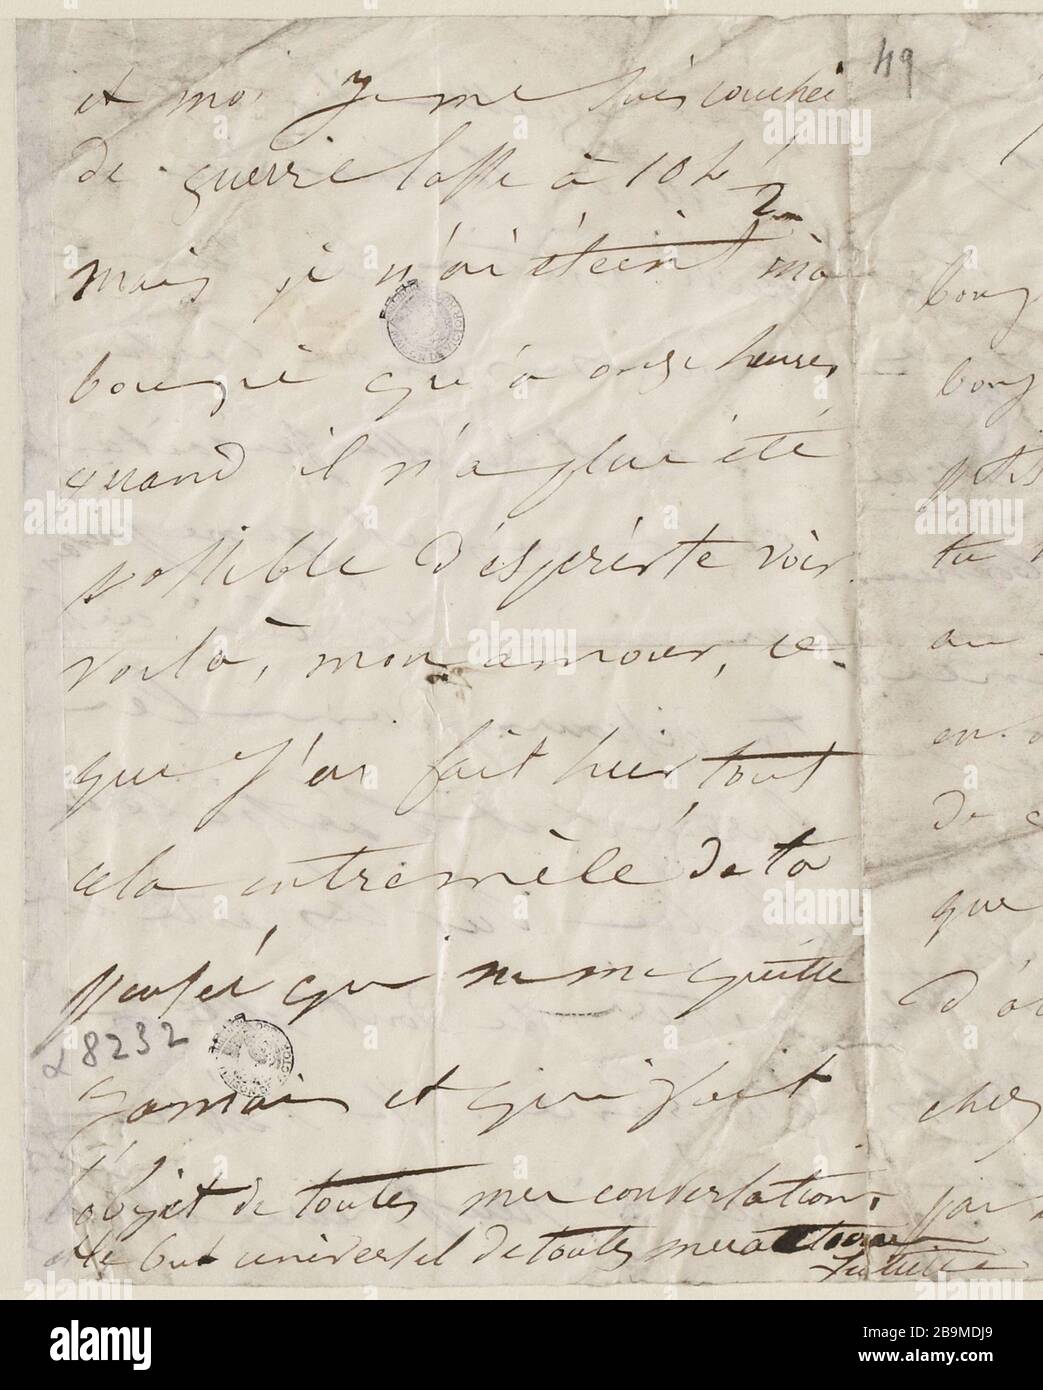 49
et moi je me suis couchée
de guerre lasse à 10 h ½
mais je n'ai éteint ma
bougie qu'à onze heures
quand il n'a plus été
possible d'espérer te voir.
voilà, mon amour, ce
que j'ai fait hier tout
cela entremêlé de ta
pensée qui ne me quitte
α 8232
jamais et qui fait
l'objet de toutes mes conversations
et le but universel de toutes mes actions
Juliette
boug
bou
petis
tu
au
on
de
que
d'a
chez
par
alamy
Image ID: 2B9MDJ9
www.alamy.com